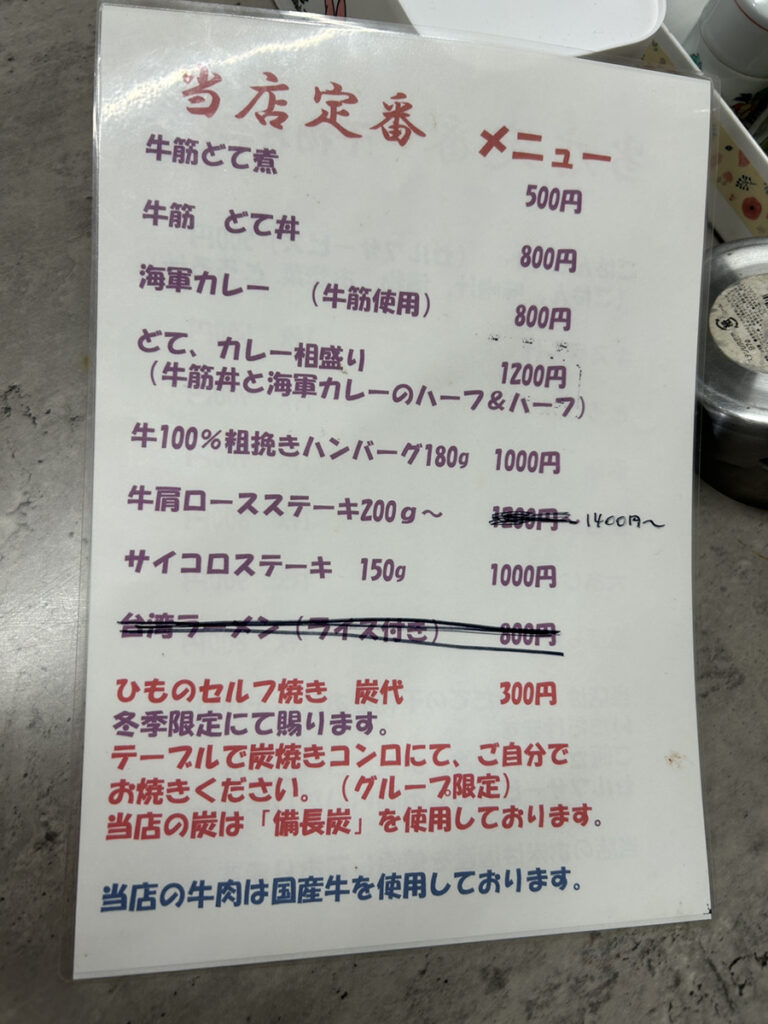 当店定番 メニュー
牛筋どて煮 500円
牛筋 どて丼 800円
海軍カレー （牛筋使用） 800円
どて、カレー相盛り 1200円
（牛筋丼と海軍カレーのハーフ＆ハーフ）
牛100％粗挽きハンバーグ180g 1000円
牛肩ロースステーキ200ｇ～ 1200円～ 1400円～
サイコロステーキ 150g 1000円
台湾ラーメン（ライス付き） 800円
ひものセルフ焼き 炭代 300円
冬季限定にて賜ります。
テーブルで炭焼きコンロにて、ご自分で
お焼きください。（グループ限定）
当店の炭は「備長炭」を使用しております。
当店の牛肉は国産牛を使用しております。